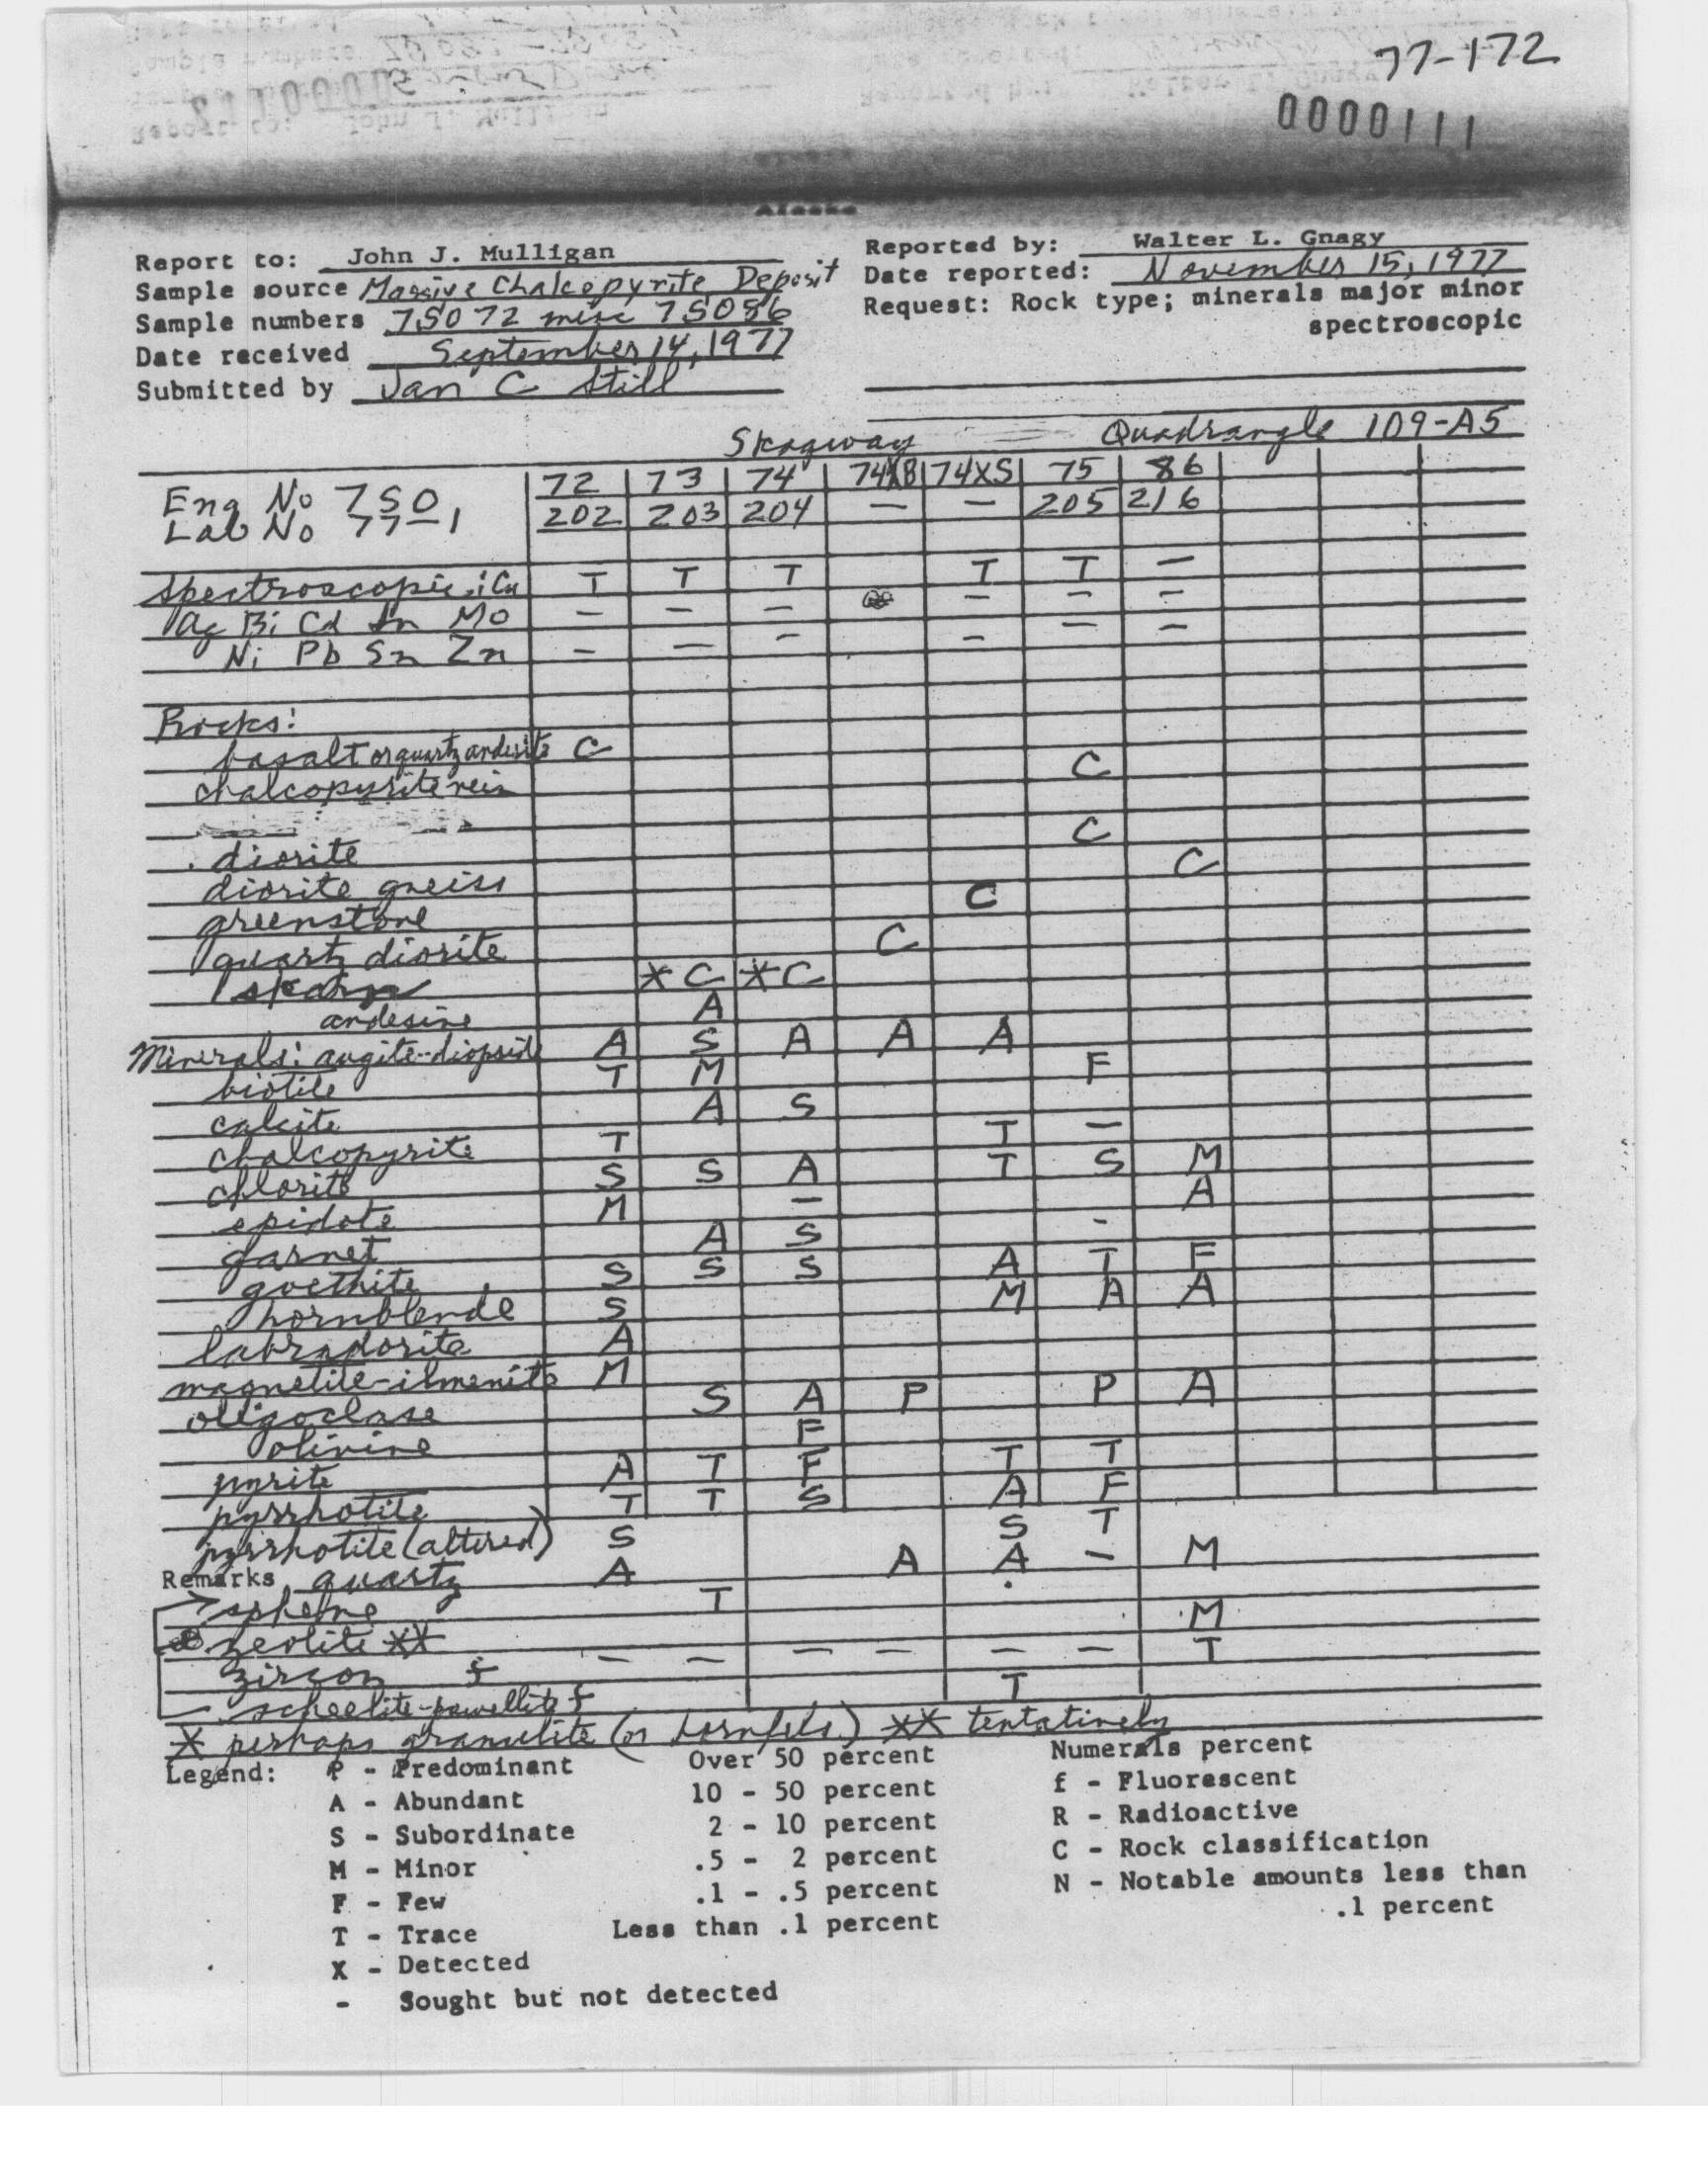 77-172
0000111
Alaska
Report to: John J. Mulligan
Reported by: Walter L. Gnagy
Sample source Massive Chalcopyrite Deposit
Date reported: November 15, 1977
Sample numbers 7S072 misc 7S086
Request: Rock type; minerals major minor
spectroscopic
Date received September 14, 1977
Submitted by Jan C Still
Skagway Quadrangle 109-A5
Eng No 7S0, 72 73 74 74XB 74XS 75 86
Lab No 77-1 202 203 204 — — 205 216
Spectroscopic: Cu T T T T T —
Ag Bi Cd In Mo — — — — — —
Ni Pb Sn Zn — — — — — —
Rocks:
basalt or quartz andesite C
chalcopyrite vein C
diorite C
diorite gneiss C
greenstone C
quartz diorite C
skarn *C *C
andesine A
Minerals: augite-diopside A S A A A
biotite T M F
calcite A S
chalcopyrite T T —
chlorite S S A T S M
epidote M — A
garnet A S -
goethite S S S A T F
hornblende S M A A
labradorite A
magnetite-ilmenite M
oligoclase S A P P A
olivine F
pyrite A T F T T
pyrrhotite T T S A F
pyrrhotite (altered) S S T
Remarks quartz A A A — M
sphene T
zeolite ** M
zircon f — — — — — — T
scheelite-powellite f T
* perhaps granulite (or hornfels) ** tentatively
Legend: P - Predominant Over 50 percent Numerals percent
A - Abundant 10 - 50 percent f - Fluorescent
S - Subordinate 2 - 10 percent R - Radioactive
M - Minor .5 - 2 percent C - Rock classification
F - Few .1 - .5 percent N - Notable amounts less than
.1 percent
T - Trace Less than .1 percent
X - Detected
- Sought but not detected